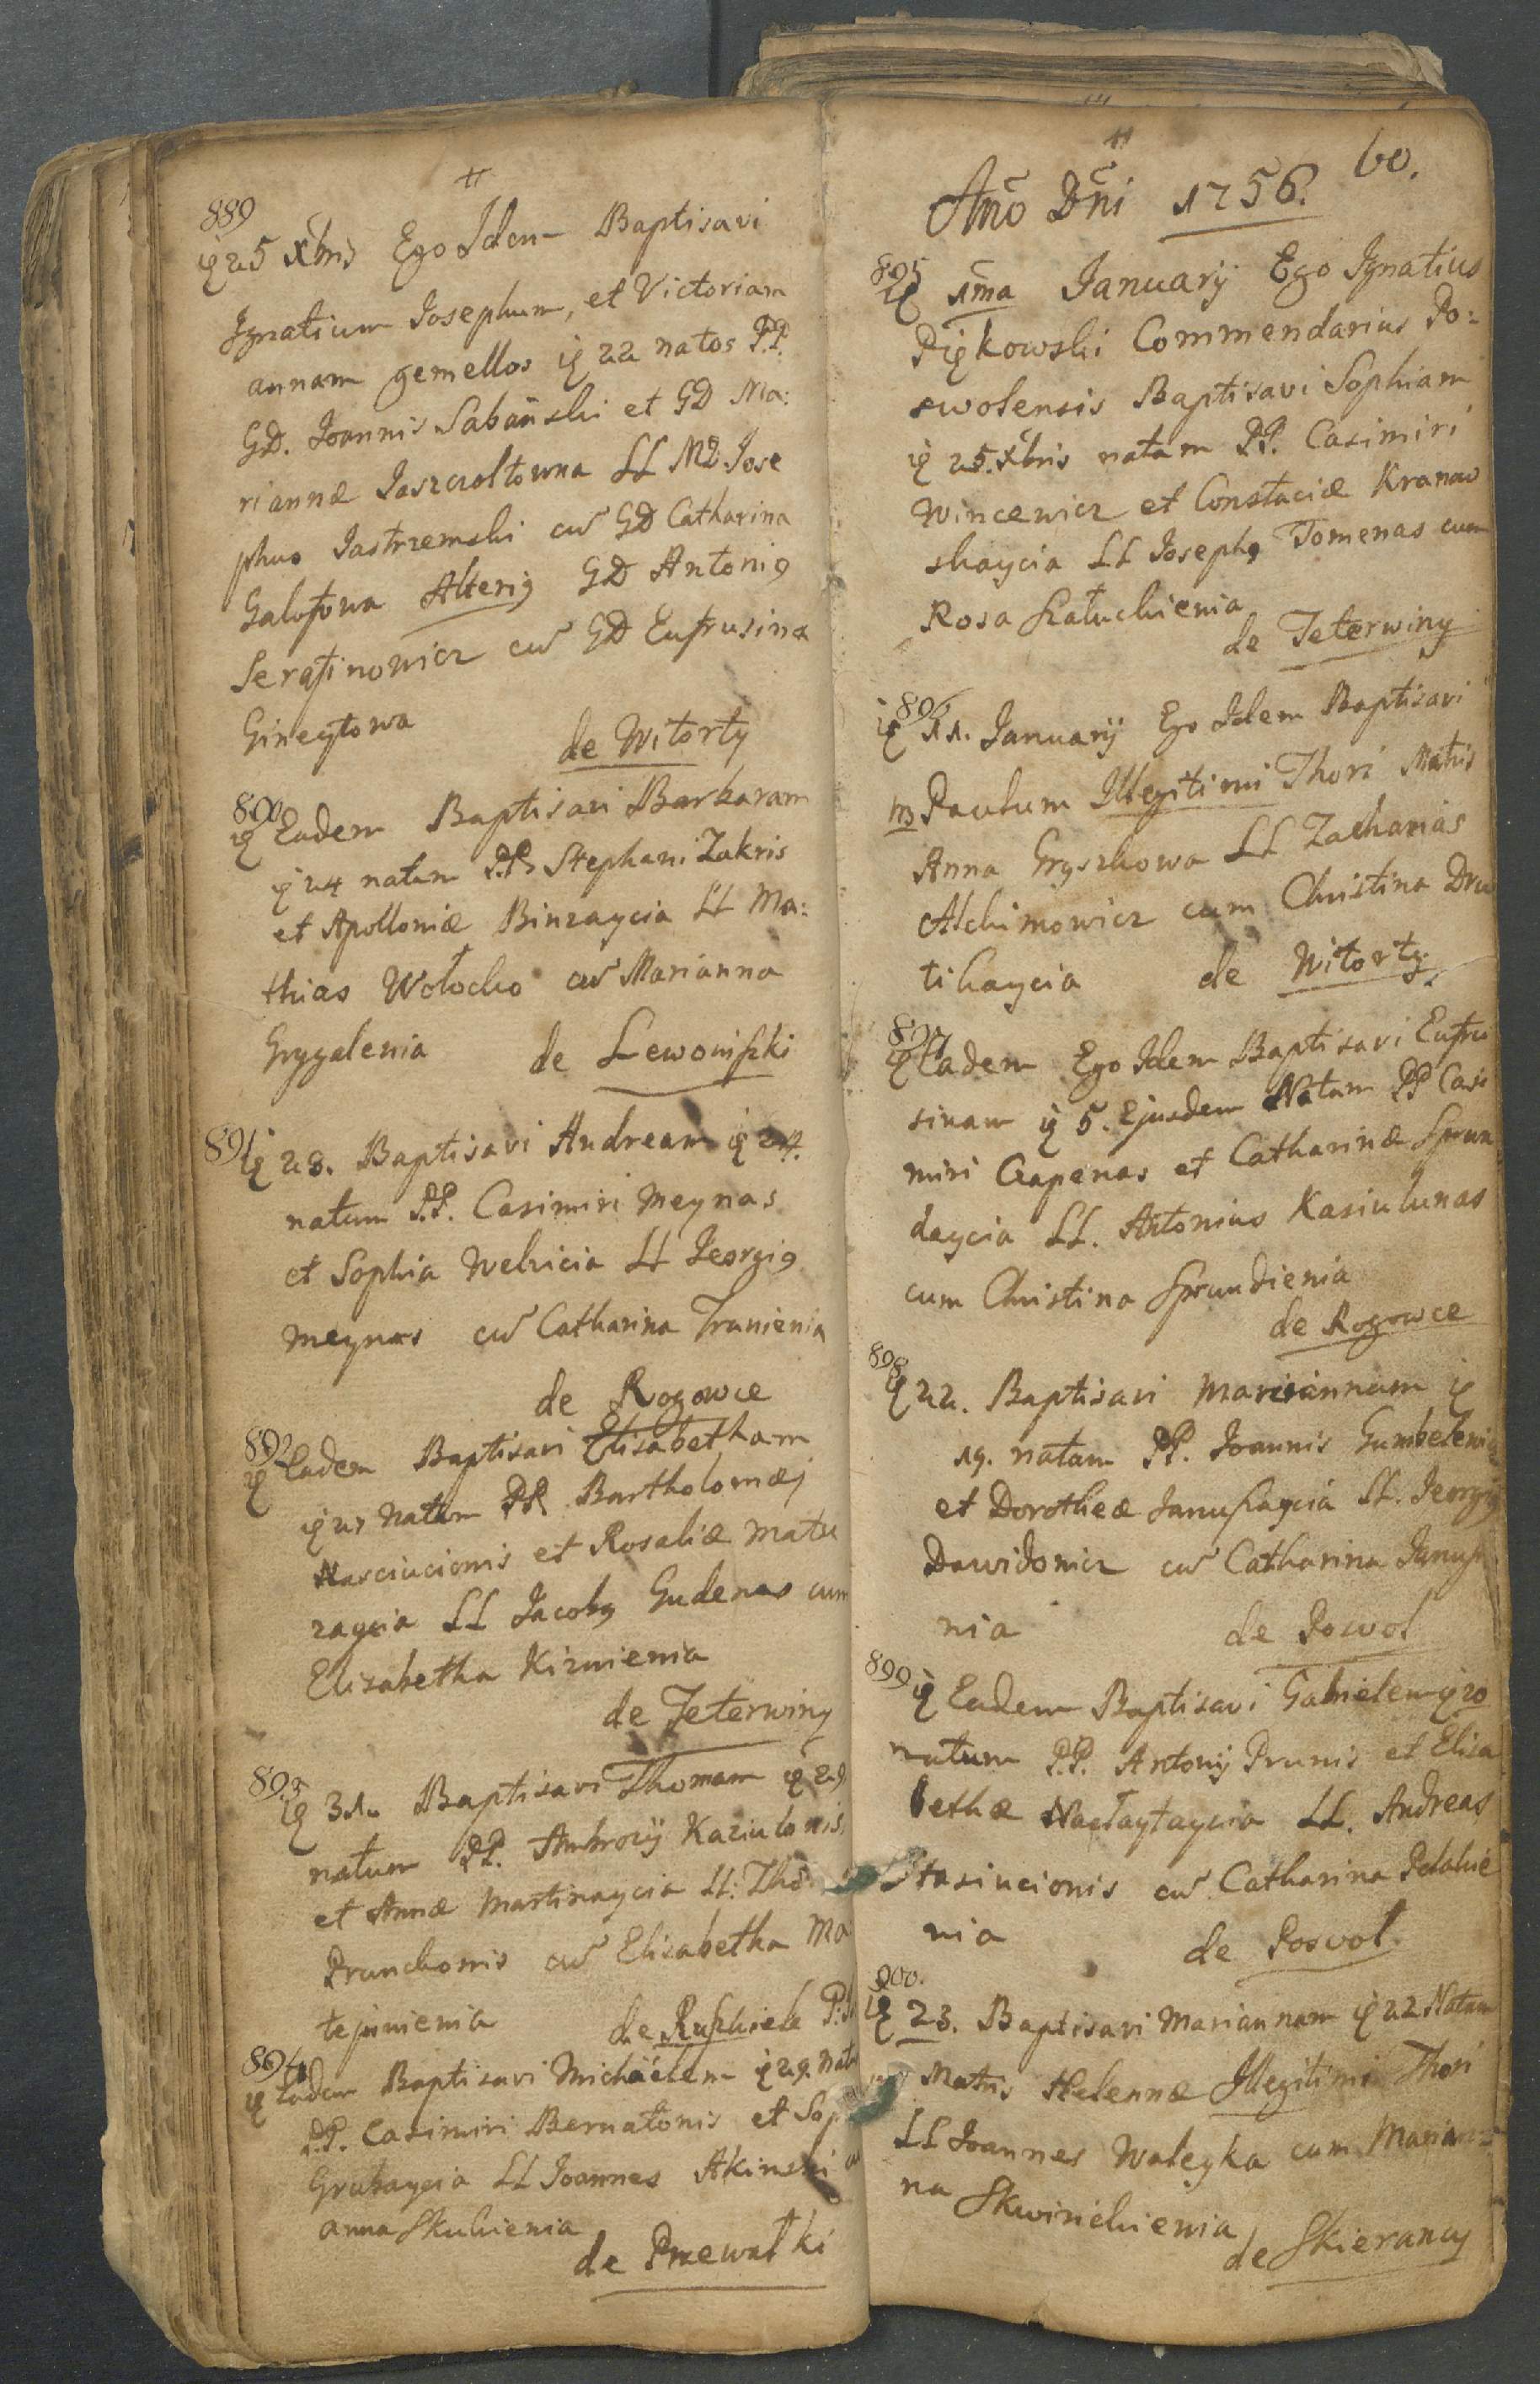 889
25 Xbris Ego Idem Baptisavi
Ignatium Iosephum, et Victoriam
annam gemellos 22 natos P.P.
GD. Joannis Sabański et GD Ma:
riannæ Jaszczoltowna LL MD. Jose
phus Jastrzemski cum GD Catharina
Galofowa Alterig GD Antonig
Serafinowicz cum GD Eufrusina
Gineytowa
de Witorty
890
Eadem Baptisavi Barbaram
24 natam PP. Stephani Zakris
et Apolloniæ Binzaycia LL Ma:
thias Wołocho cum Marianna
Grygalenia de Lewoniszki
891
28. Baptisavi Andream 24.
natum P.P. Casimiri Meynas
et Sophia Welzicia LL Jeorgig
Meynas cum Catharina Trunienia
de Rogowce
892
Eadem Baptisavi Elisabetham
27 natam PP. Bartholomæj
Nasciucionis et Rosaliæ Matu
zaycia LL Jacobg Gudenas cum
Elizabetha Kiznienia
de Jeterwiny
893
31. Baptisavi Thomam 29
natum PP. Ambrozÿ Kaziulonis
et Annæ Martinaycia LL. Tho
Prunckonis cum Elisabetha Ma
tejunienia de Ruszkiele
894
Eadem Baptisavi Michaëlem 29. natu
P.P. Casimiri Bernatonis et Sop
Grubaycia LL Joannes Akinski
anna Skulienia
de Przewałki
60.
Año Dñi 1756.
895
1ma Januarÿ Ego Ignatius
Piękowski Commendarius Po:
swolensis Baptisavi Sophiam
25. Xbris natam P.P. Casimiri
Wincewicz et Constaciæ Kranaw
skaycia LL Josephg Tomenas cum
Rosa Katuchienia
de Teterwiny
896
11. Januarÿ Ego Idem Baptisavi
Paulum Illegitimi Thori Matris
Anna Gryszkowa LL Zacharias
Alchimowicz cum Christina Dru
tikaycia de Witorty.
897
Eadem Ego Idem Baptisavi Eufru
sinam 5. Ejusdem Natam PP Casi
miri Czapenas et Catharinæ Sprun
daycia LL. Antonius Kasiulunas
cum Christina Sprundienia
de Rogowce
898
22. Baptisavi Mariannam
19. natam PP. Joannis Gumbelewi
et Dorotheæ Januszaycia LL. Jeorgig
Dawidowicz cum Catharina Janusz
nia de Poswol
899
Eadem Baptisavi Gabrielem 20
natum P.P. Antonÿ Prunis et Elisa
bethæ Nactaytaycia LL. Andreas
Stasiucionis cum Catharina Pelakie
nia de Poswol.
900.
23. Baptisavi Mariannam 22 Natam
Matris Helennæ Illegitimi Thori
LL Joannes Waleyka cum Marian=
na Skwirichienia
de Skierancy